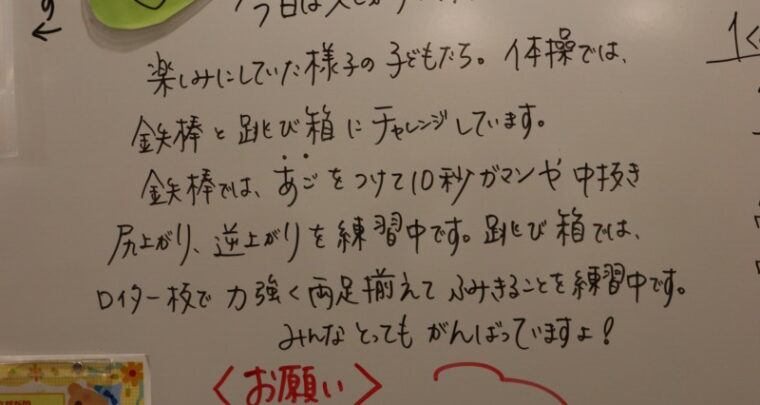 今日は
楽しみにしていた様子の子どもたち。体操では、
鉄棒と跳び箱にチャレンジしています。
鉄棒では、あごをつけて10秒ガマンや中抜き
尻上がり、逆上がりを練習中です。跳び箱では、
ロイター板で力強く両足揃えてふみきることを練習中です。
みんなとってもがんばっていますよ!
<お願い>